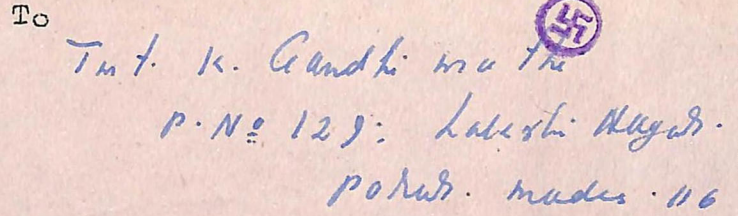 To
Tmt. K. Gandhi mathi
P. Nº 129, Lakshi Nagar.
Porur. Madras. 116